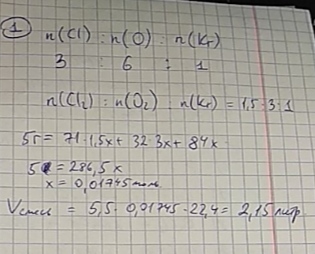 1 n(Cl) : n(O) : n(Kr)
3 : 6 : 1
n(Cl₂) : n(O₂) : n(Kr) = 1,5 : 3 : 1
5г = 71·1,5x + 32·3x + 84x
5 = 286,5x
x = 0,01745 моль
Vсмеси = 5,5 · 0,01745 · 22,4 = 2,15 литр